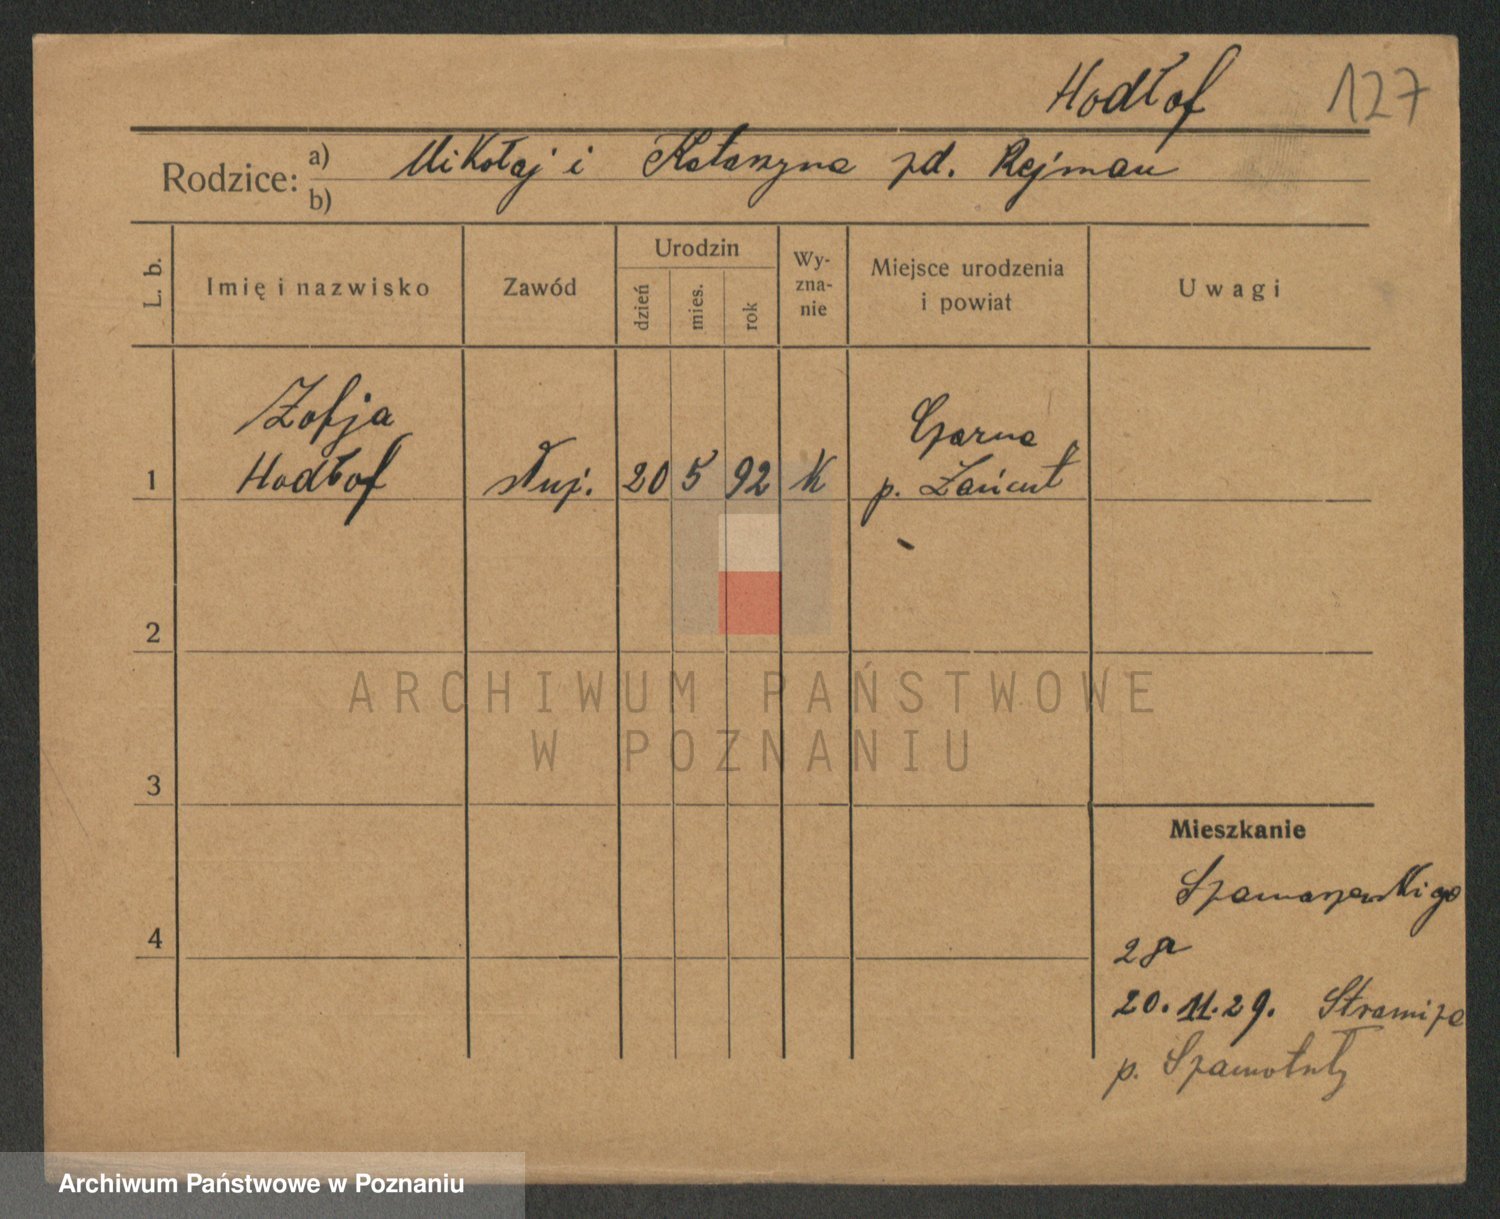 Hodłof 127
Rodzice: a) Mikołaj i Katarzyna zd. Rejman
b)
L. b.
Imię i nazwisko
Zawód
Urodzin
dzień
mies.
rok
Wy-
zna-
nie
Miejsce urodzenia
i powiat
Uwagi
Zofja Czarna
1 Hodłof służ. 20 5 92 K p. Łańcut
2
ARCHIWUM PAŃSTWOWE
W POZNANIU
3
Mieszkanie
Szamarzewskiego
4
20.11.29.
p. Szamotuły
Archiwum Państwowe w Poznaniu